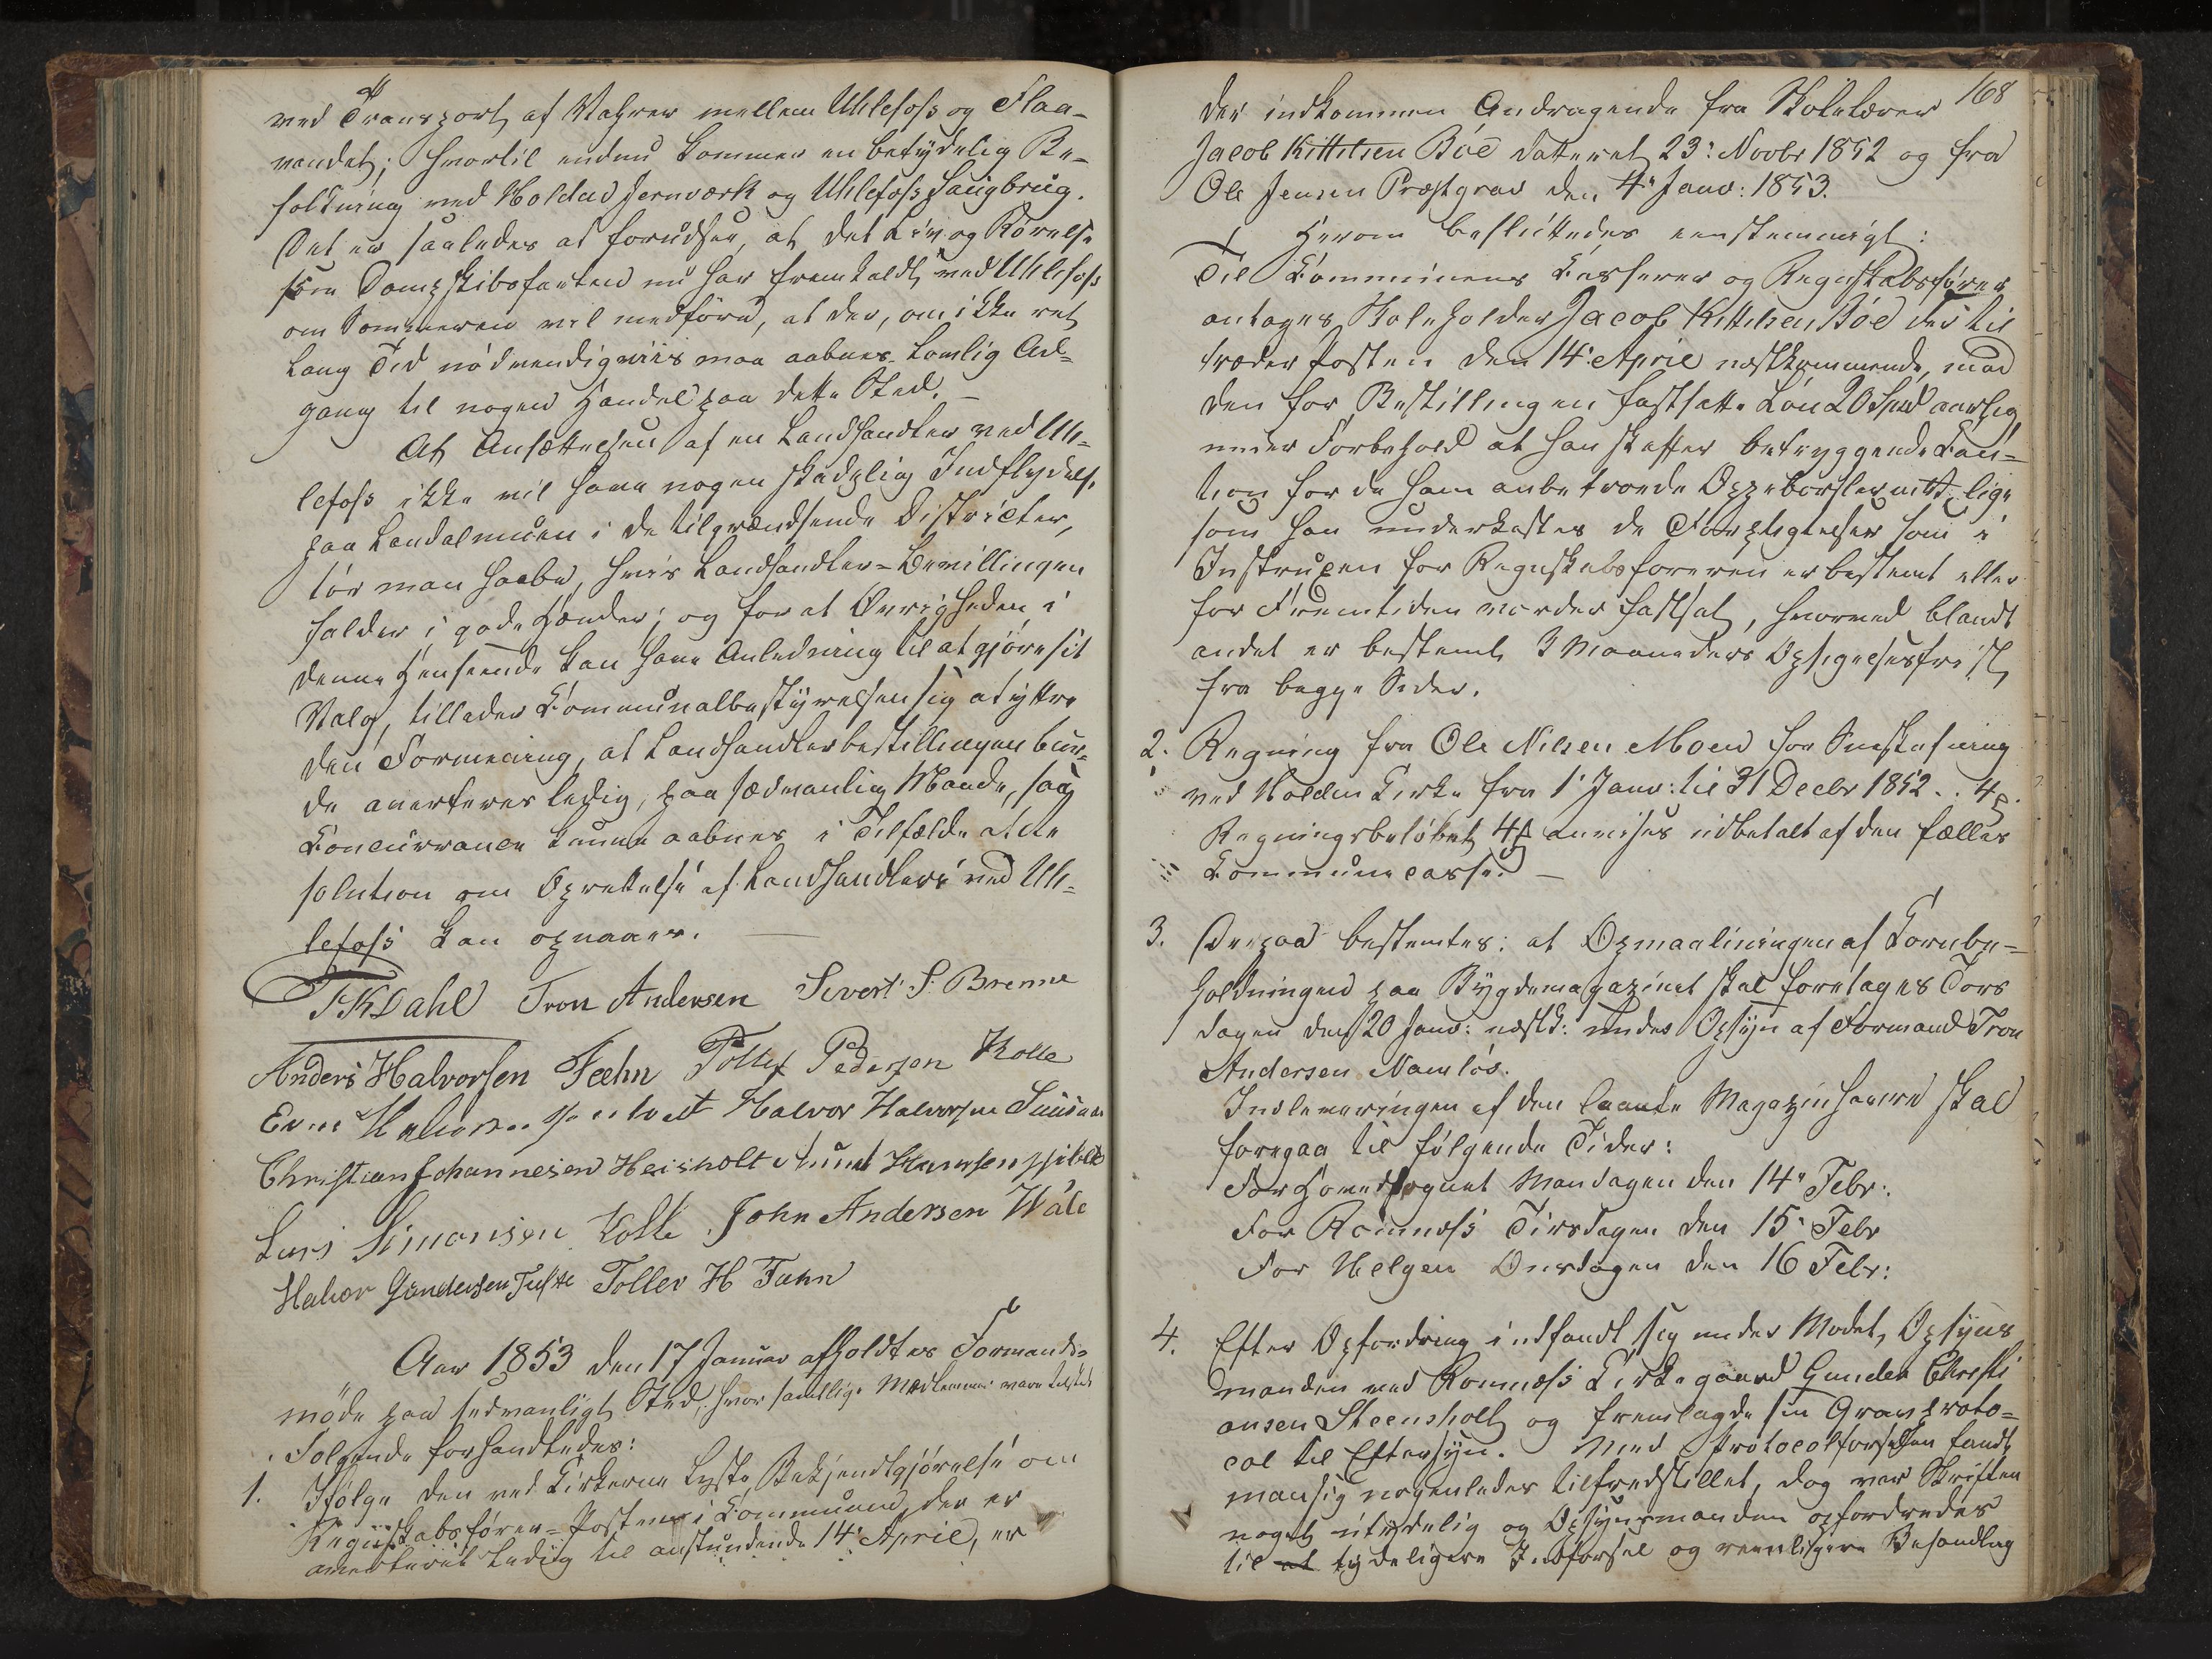 ved Transport af Vahrer mellem Ulefoss og Flaa-
vandet; hvortil endnu kommer en betydelig Be-
folkning ved Holden Jernværk og Ulefoss Saugbrug.
Det er saaledes at forudsee, at det Liv og Rörelse
som Dampskibsfarten nu har fremkaldt ved Ulefoss
om Sommeren vil medföre, at der, om ikke ret
lang Tid nödvendigviis maa aabnes lovlig Ad-
gang til nogen Handel paa dette Sted. -
At Ansættelsen af en Landhandler ved Ule-
lefoss ikke vil have nogen skadelig Indflydelse
paa Landalmuen i de tilgrændsende Districter,
tör man haabe, hvis Landhandler-Bevillingen
falder i gode Hænder; og for at Övrigheden i
denne Henseende kan have Anledning til at gjöre sit
Valg, tillader Communalbestyrelsen sig at yttre
den Formening, at Landhandlerbestillingen bur-
de averteres ledig, paa sædvanlig Maade, saa
Concurrance kunne aabnes i Tilfælde at Re
solution om Oprettelse af Landhandleri ved Ule-
lefoss kan opnaaes.
TKDahl Tron Andersen Sivert S. Brenne
Anders Halvorsen Feehn Tollef Pedersen Kolle
Halvor Halvorsen
Christian Johannesen Heisholt Knud
Lars Simonsen Kolle John Andersen Wale
Halvor Gundersen Tufte Tollev H Fahn
Aar 1853 den 17 Januar afholdtes Formands-
möde paa sedvanligt Sted, hvor samtlige Medlemmer vare tilstede
Folgende forhandledes:
1. Ifölge den ved Kirkerne lyste Bekjendtgjörelse om
Regnskabsförer-Posten i Communen, der er
averteret ledig til anstundende 14 April, er
168
der indkommen Andragende fra Skolelærer
Jacob Kittilsen Böe datteret 23: Novbr 1852 og fra
Ole Jensen Præstgrav den 4 Janv: 1853.
Herom besluttedes eenstemmigt:
Til Communens Casserer og Regnskabsförer
antages Skoleholder Jacob Kittilsen Böe der til
træder Posten den 14 April næstkommende, med
den for Bestillingen fastsatte Lön 20 Spd aarlig,
under Forbehold at han skaffer betryggende Cau-
tion for de ham anbetroede Oppebörsler lige
som han underkastes de Forpligtelser som i
Instruxen for Regnskabsföreren er bestemt eller
for Fremtiden vorder fastsat, hvorved blandt
andet er bestemt 3 Maaneders Opsigelsesfrist
fra begge Sider.
2. Regning fra Ole Nilsen Moen for Sneskufning
ved Holden Kirke fra 1 Janv: til 31 Decbr 1852 . . 4
Regningsbelöbet 4 anvises udbetalt af den fælles
Communecasse. -
3. Derpaa bestemtes: at Opmaalningen af Kornbe-
holdningen paa Bygdemagazinet skal foretages Tors
dagen den 20 Janv: næstk: under Opsyn af Formand Tron
Andersen Namlös.
Indleveringen af den laante Magazinhavre skal
foregaa til fölgende Tider:
For Hovedsognet Mandagen den 14 Febr:
For Romnæss Tirsdagen den 15 Febr
For Helgen Onsdagen den 16 Febr:
4. Efter Opfordring indfandt sig under Mödet, Opsyns
manden ved Romnæss Kirkegaard Gunder Christi
ansen Steensholt og fremlagde sin Gravproto-
col til Eftersyn. Med Protocolförselen fandt
man sig nogenledes tilfredstillet, dog var Skriften
noget utydelig og Opsynsmanden opfordredes
til at tydeligere Indförsel og reenligere Behandling